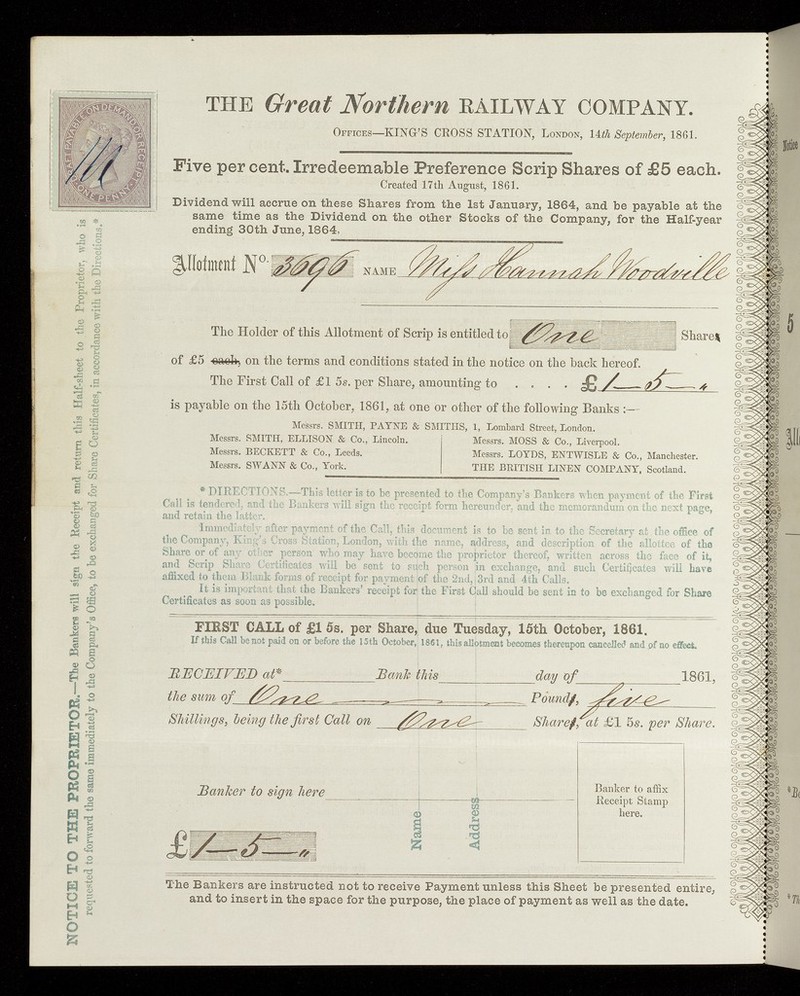 DRAFT PAYABLE ON DEMAND OR RECEIPT
ONE PENNY
THE Great Northern RAILWAY COMPANY.
OFFICES—KING'S CROSS STATION, LONDON, 14th September, 1861.
Five per cent. Irredeemable Preference Scrip Shares of £5 each.
Created 17th August, 1861.
Dividend will accrue on these Shares from the 1st January, 1864, and be payable at the
same time as the Dividend on the other Stocks of the Company, for the Half-year
ending 30th June, 1864.
Allotment No. 3696 NAME Miss Hannah Woodville
The Holder of this Allotment of Scrip is entitled to One Shares
of £5 each, on the terms and conditions stated in the notice on the back hereof.
The First Call of £1 5s. per Share, amounting to . . . . £ 1—5—"
is payable on the 15th October, 1861, at one or other of the following Banks :—
Messrs. SMITH, PAYNE & SMITHS, 1, Lombard Street, London.
Messrs. SMITH, ELLISON & Co., Lincoln.
Messrs. BECKETT & Co., Leeds.
Messrs. SWANN & Co., York.
Messrs. MOSS & Co., Liverpool.
Messrs. LOYDS, ENTWISLE & Co., Manchester.
THE BRITISH LINEN COMPANY, Scotland.
* DIRECTIONS.—This letter is to be presented to the Company's Bankers when payment of the First
Call is tendered, and the Bankers will sign the receipt form hereunder, and the memorandum on the next page,
and retain the latter.
Immediately after payment of the Call, this document is to be sent in to the Secretary at the office of
the Company, King's Cross Station, London, with the name, address, and description of the allottee of the
Share or of any other person who may have become the proprietor thereof, written across the face of it,
and Scrip Share Certificates will be sent to such person in exchange, and such Certificates will have
affixed to them Blank forms of receipt for payment of the 2nd, 3rd and 4th Calls.
It is important that the Bankers' receipt for the First Call should be sent in to be exchanged for Share
Certificates as soon as possible.
FIRST CALL of £1 5s. per Share, due Tuesday, 15th October, 1861.
If this Call be not paid on or before the 15th October, 1861, this allotment becomes thereupon cancelled and of no effect.
RECEIVED at* Bank this day of 1861,
the sum of One Pounds, five
Shillings, being the first Call on One Shares, at £1 5s. per Share.
Banker to sign here
Banker to affix
Receipt Stamp
here.
£ 1—5—"
Name
Address
The Bankers are instructed not to receive Payment unless this Sheet be presented entire,
and to insert in the space for the purpose, the place of payment as well as the date.
NOTICE TO THE PROPRIETOR.—The Bankers will sign the Receipt and return this Half-sheet to the Proprietor, who is
requested to forward the same immediately to the Company's Office, to be exchanged for Share Certificates, in accordance with the Directions.*
Notice
5